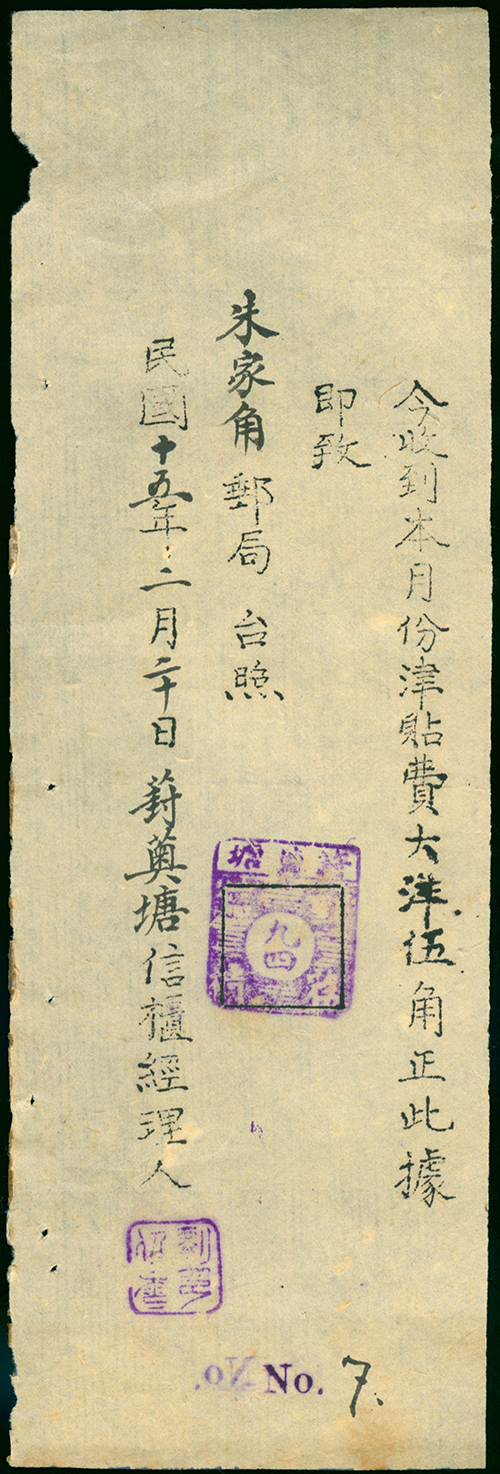 今收到本月份津貼費大洋伍角正此據
即致
朱家角郵局 台照
民國十五年二月二十日 葑奧塘信櫃經理人
九四
No. 7.